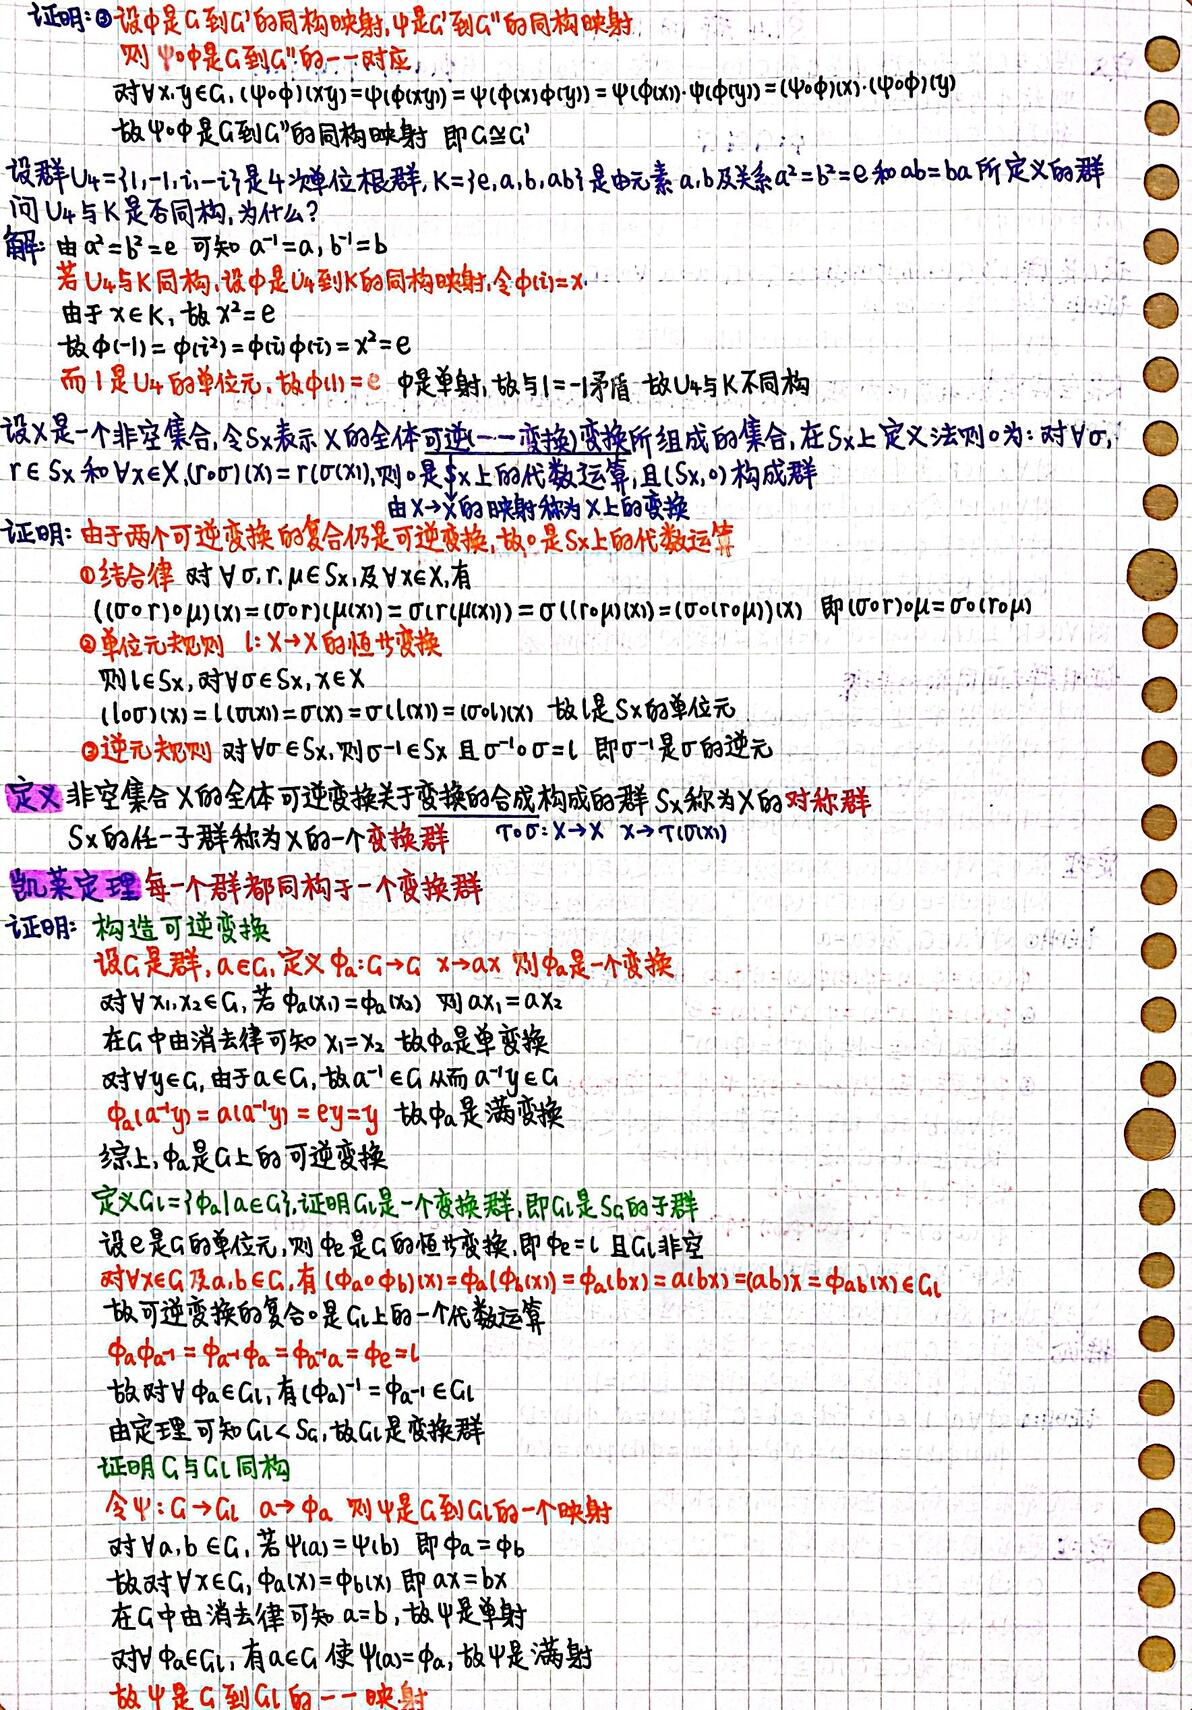 证明:③设φ是G到G'的同构映射,ψ是G'到G''的同构映射
则 ψ∘φ是G到G''的一一对应
对∀x.y∈G,(ψ∘φ)(xy)=ψ(φ(xy))=ψ(φ(x)φ(y))=ψ(φ(x))·ψ(φ(y))=(ψ∘φ)(x)·(ψ∘φ)(y)
故ψ∘φ是G到G''的同构映射 即G≅G'
设群U₄={1,-1,i,-i}是4次单位根群,K={e,a,b,ab}是由元素a,b及关系a²=b²=e和ab=ba所定义的群
问U₄与K是否同构,为什么?
解:由a²=b²=e 可知 a⁻¹=a, b⁻¹=b
若U₄与K同构,设φ是U₄到K的同构映射,令φ(i)=x.
由于x∈K, 故x²=e
故φ(-1)=φ(i²)=φ(i)φ(i)=x²=e
而1是U₄的单位元,故φ(1)=e φ是单射,故与1=-1矛盾 故U₄与K不同构
设X是一个非空集合,令Sx表示X的全体可逆(一一变换)变换所组成的集合,在Sx上定义法则∘为:对∀σ,
r∈Sx和∀x∈X,(r∘σ)(x)=r(σ(x)),则∘是Sx上的代数运算,且(Sx,∘)构成群
由X→X的映射称为X上的变换
证明:由于两个可逆变换的复合仍是可逆变换,故∘是Sx上的代数运算
①结合律 对∀σ,r.μ∈Sx,及∀x∈X,有
((σ∘r)∘μ)(x)=(σ∘r)(μ(x))=σ(r(μ(x)))=σ((r∘μ)(x))=(σ∘(r∘μ))(x) 即(σ∘r)∘μ=σ∘(r∘μ)
②单位元规则 l:X→X的恒等变换
则l∈Sx,对∀σ∈Sx,x∈X
(l∘σ)(x)=l(σ(x))=σ(x)=σ(l(x))=(σ∘l)(x) 故l是Sx的单位元
③逆元规则 对∀σ∈Sx,则σ-1∈Sx 且σ⁻¹∘σ=l 即σ-1是σ的逆元
定义 非空集合X的全体可逆变换关于变换的合成构成的群Sx称为X的对称群
Sx的任一子群称为X的一个变换群 τ∘σ:X→X x→τ(σ(x))
凯莱定理 每一个群都同构于一个变换群
证明: 构造可逆变换
设G是群,a∈G,定义φa:G→G x→ax 则φa是一个变换
对∀x₁,x₂∈G,若φa(x₁)=φa(x₂) 则ax₁=ax₂
在G中由消去律可知x₁=x₂ 故φa是单变换
对∀y∈G,由于a∈G,故a⁻¹∈G从而a⁻¹y∈G
φa(a⁻¹y)=a(a⁻¹y)=ey=y 故φa是满变换
综上,φa是G上的可逆变换
定义Gl={φa|a∈G},证明Gl是一个变换群,即Gl是SG的子群
设e是G的单位元,则φe是G的恒等变换,即φe=l 且Gl非空
对∀x∈G及a,b∈G,有(φa∘φb)(x)=φa(φb(x))=φa(bx)=a(bx)=(ab)x=φab(x)∈Gl
故可逆变换的复合∘是Gl上的一个代数运算
φaφa⁻¹=φa⁻¹φa=φa⁻¹a=φe=l
故对∀φa∈Gl,有(φa)⁻¹=φa-1∈Gl
由定理可知Gl<SG,故Gl是变换群
证明G与Gl同构
令ψ:G→Gl a→φa 则ψ是G到Gl的一个映射
对∀a,b∈G,若ψ(a)=ψ(b) 即φa=φb
故对∀x∈G,φa(x)=φb(x) 即ax=bx
在G中由消去律可知a=b,故ψ是单射
对∀φa∈Gl,有a∈G使ψ(a)=φa,故ψ是满射
故ψ是G到Gl的一一映射